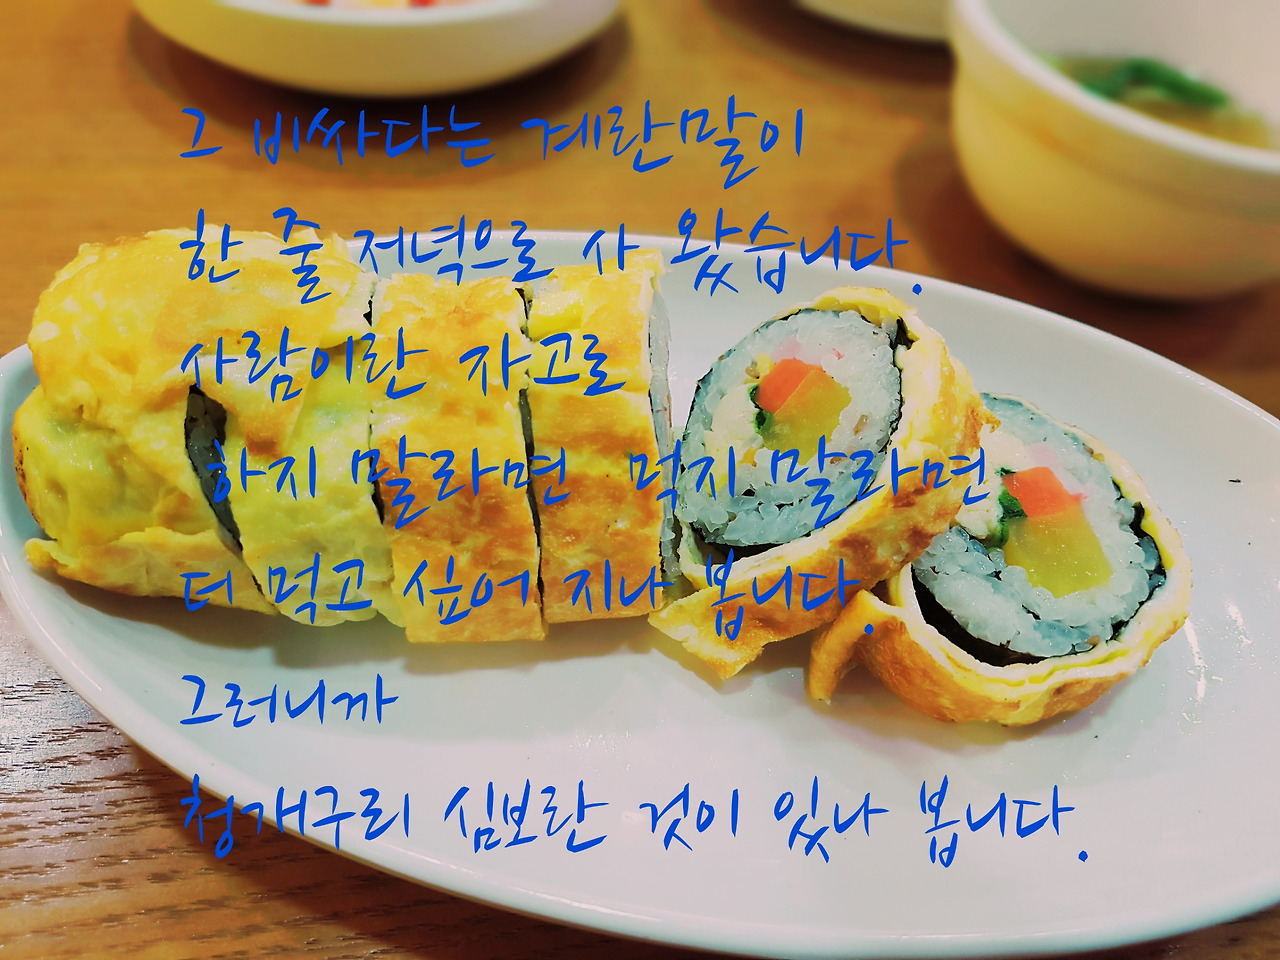 그 비싸다는 계란말이
한 줄 저녁으로 사 왔습니다.
사람이란 자고로
하지 말라면 먹지 말라면
더 먹고 싶어 지나 봅니다.
그러니까
청개구리 심보란 것이 있나 봅니다.